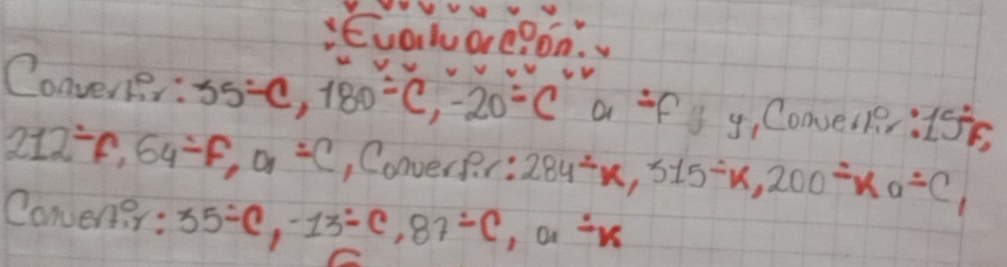 Evaluación.
Convertir: 35°C, 180°C, -20°C a °F y, Convertir: 15°F,
212°F, 64°F, a °C, Convertir: 284°K, 315°K, 200°K a °C,
Convertir: 35°C, -13°C, 87°C, a °K